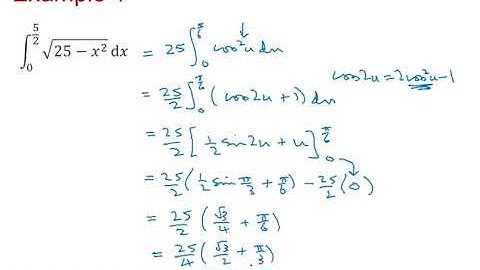 ∫₀^(5/2) √(25 − x²) dx = 25 ∫₀^(π/6) cos²u du
cos2u = 2cos²u − 1
= 25/2 ∫₀^(π/6) (cos2u + 1) du
= 25/2 [ 1/2 sin2u + u ]₀^(π/6)
= 25/2 ( 1/2 sin π/3 + π/6 ) − 25/2 (0)
= 25/2 ( √3/4 + π/6 )
= 25/4 ( √3/2 + π/3 )